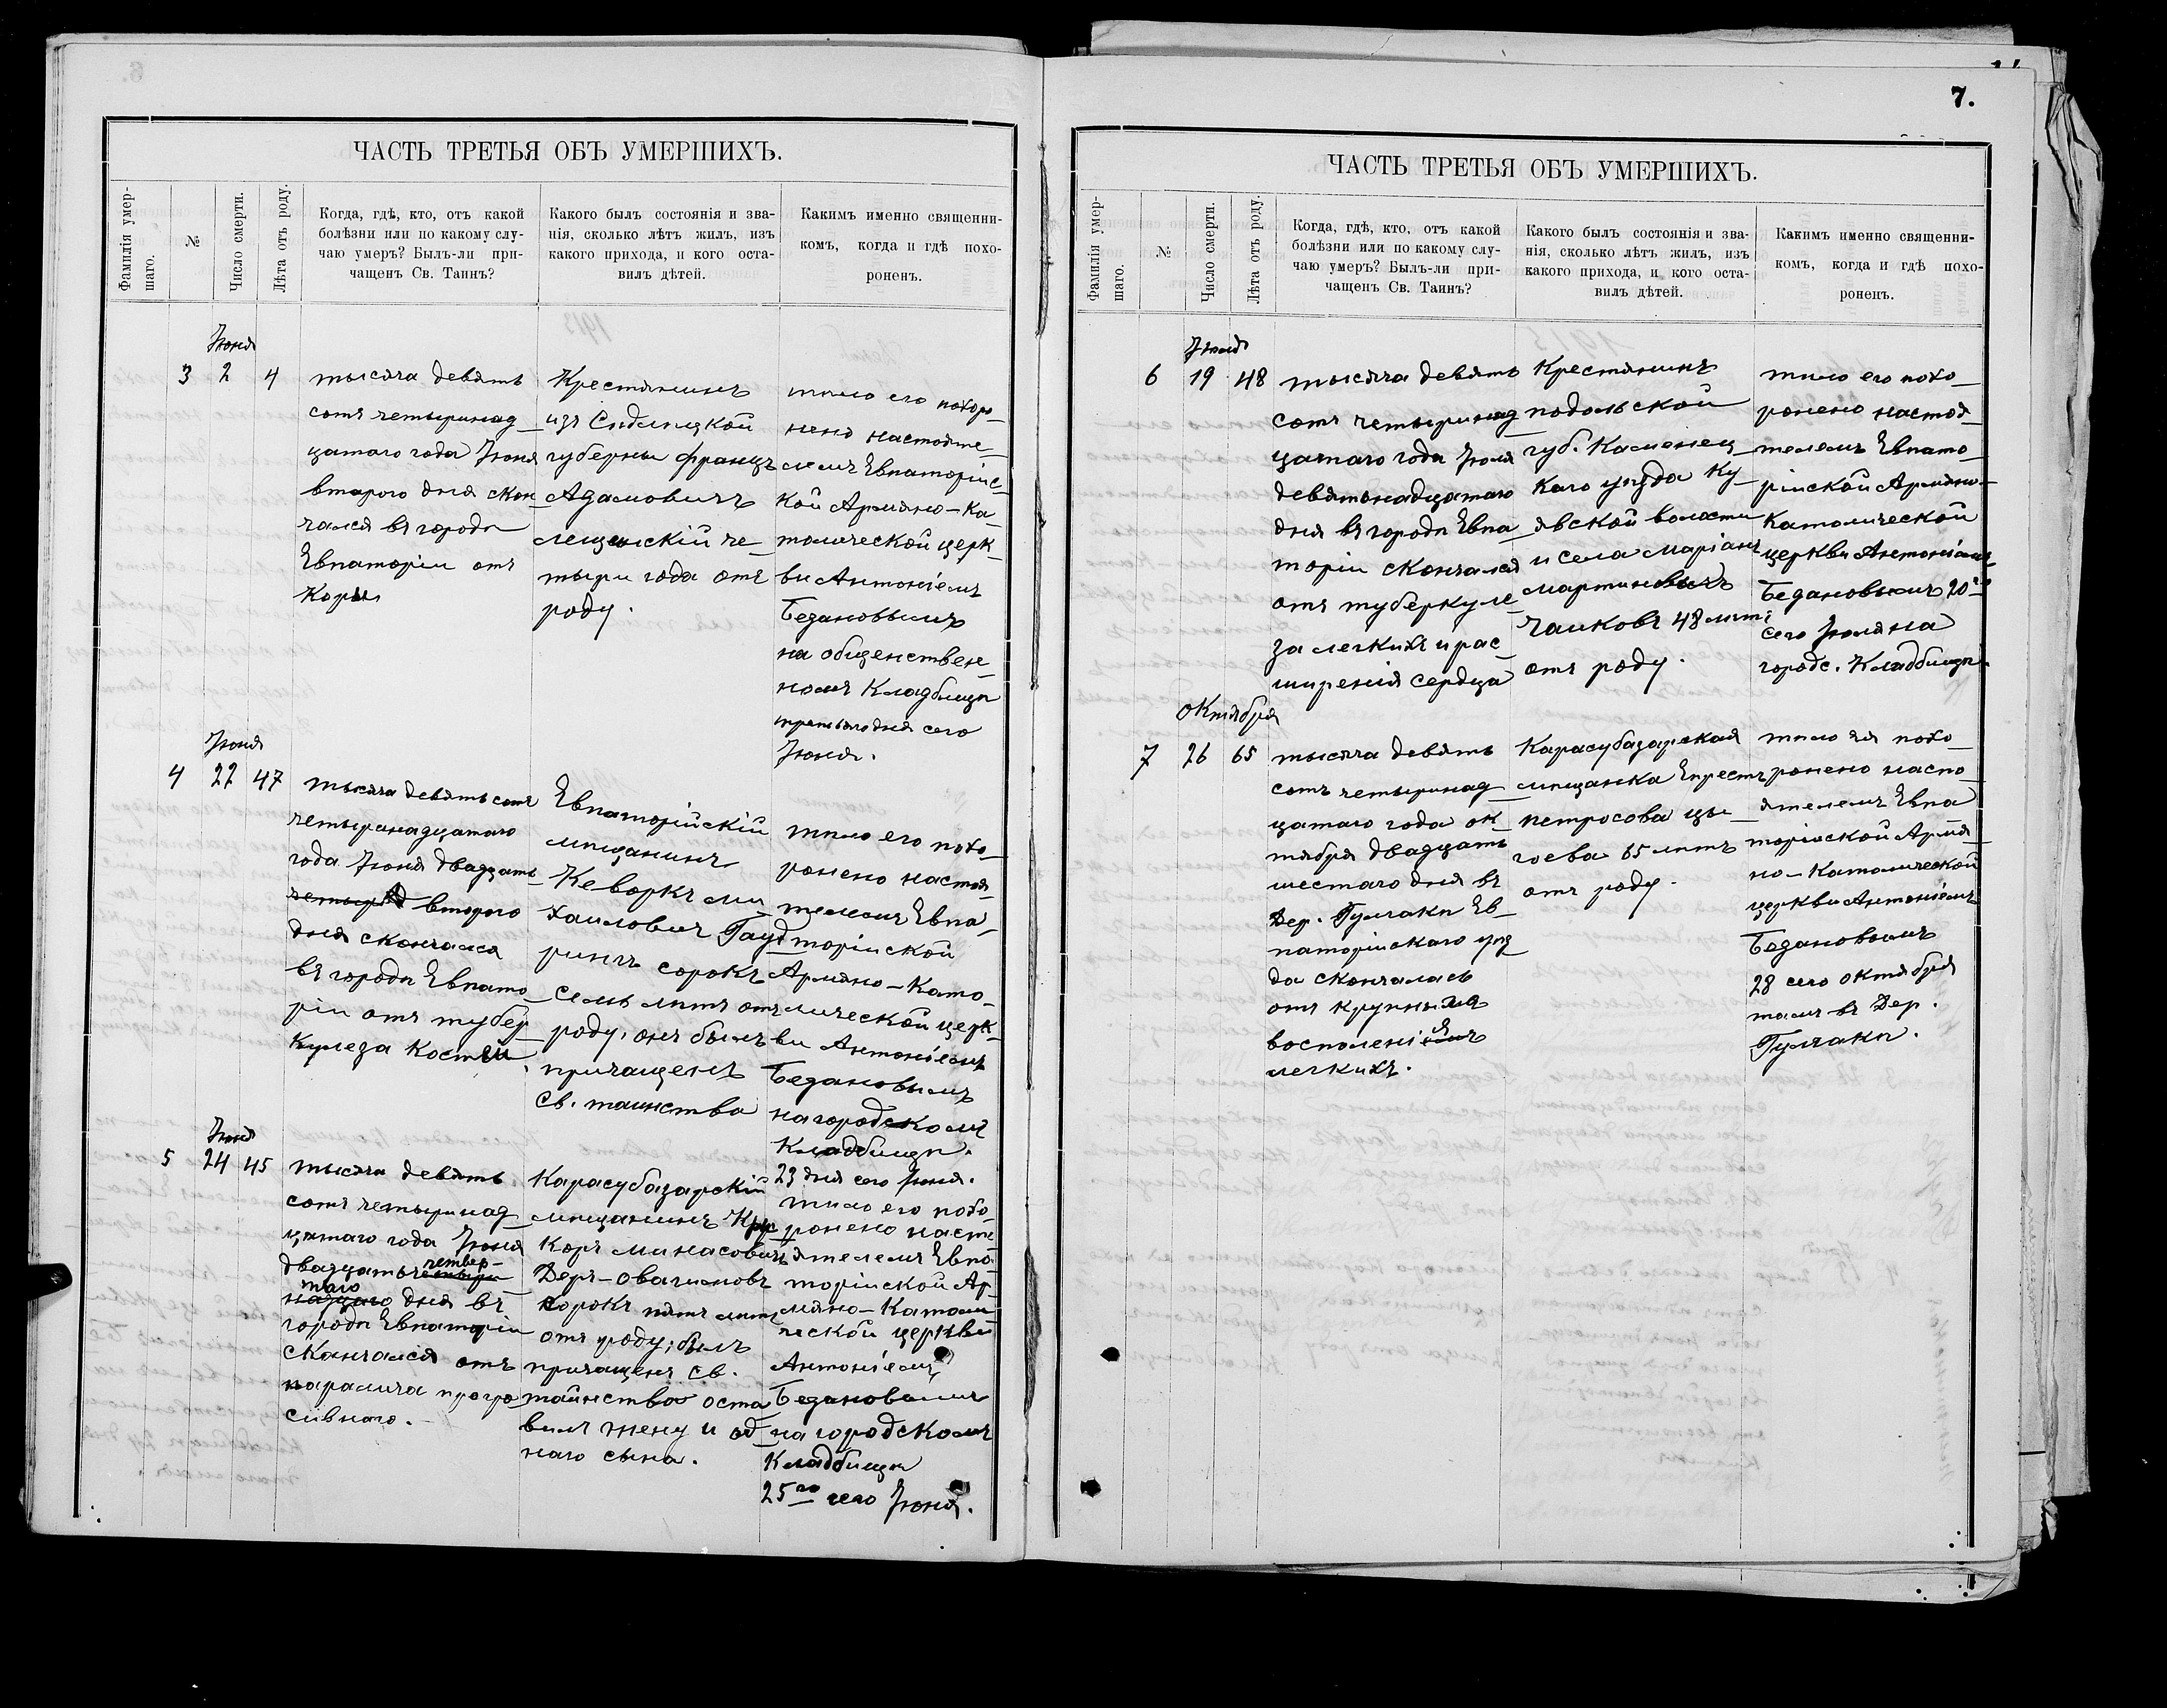 7.
ЧАСТЬ ТРЕТЬЯ ОБЪ УМЕРШИХЪ.
Фамилія умер-
шаго.
№
Число смерти.
Лѣта отъ роду.
Когда, гдѣ, кто, отъ какой
болѣзни или по какому слу-
чаю умеръ? Былъ-ли при-
чащенъ Св. Таинъ?
Какого былъ состоянія и зва-
нія, сколько лѣтъ жилъ, изъ
какого прихода, и кого оста-
вилъ дѣтей.
Какимъ именно священни-
комъ, когда и гдѣ похо-
роненъ.
Іюня
3 2 4
тысяча девять
сотъ четырнад
цатаго года Іюня
второго дня скон
чался въ городѣ
Евпаторіи отъ
Коры
Крестянинъ
изъ Сѣдлецкой
губерны францъ
Адамовичъ
че-
тыри года отъ
роду.
тѣло его похоро
нено настояте-
лемъ Евпаторійс-
кой Армяно-Ка-
толической церк-
ви Антоніемъ
Безановымъ
на общенствен-
номъ Кладбищѣ
третьяго дня сего
Іюня.
Іюня
4 22 47
тысяча девять сотъ
четырнадцатаго
года Іюня двадцать
второго
дня скончался
въ городѣ Евпато
ріи отъ тубер
кулеза Костей.
Евпаторійскій
мѣщанинъ
Кеворкъ Ми
хаиловичъ Гауд
ринъ сорокъ
семь лѣтъ отъ
роду, онъ былъ
причащенъ
Св. таинства
тѣло его похо-
ронено настоя
телемъ Евпа-
торійской
Армяно-Като-
лической церк-
ви Антоніемъ
Безановымъ
на городскомъ
Кладбищѣ.
23 дня сего Іюня.
Іюня
5 24 45
тысяча девять
сотъ четырнад
цатаго года Іюня
двадцать четвер-
таго дня въ
городѣ Евпаторіи
Скончался отъ
паралича прогре
сивнаго.
Карасубазарскій
мѣщанинъ
Минасовичъ
Деръ-Овагимовъ
сорокъ пять лѣтъ
отъ роду; былъ
причащенъ св.
таинства оста
вилъ жену и од
наго сына.
тѣло его похо
ронено насто
ятелемъ Евпа-
торійской Ар-
мяно-Католи
ческой церкви
Антоніемъ
Безановымъ
на городскомъ
Кладбищѣ
25го сего Іюня.
ЧАСТЬ ТРЕТЬЯ ОБЪ УМЕРШИХЪ.
Фамилія умер-
шаго.
№
Число смерти.
Лѣта отъ роду.
Когда, гдѣ, кто, отъ какой
болѣзни или по какому слу-
чаю умеръ? Былъ-ли при-
чащенъ Св. Таинъ?
Какого былъ состоянія и зва-
нія, сколько лѣтъ жилъ, изъ
какого прихода, и кого оста-
вилъ дѣтей.
Какимъ именно священни-
комъ, когда и гдѣ похо-
роненъ.
Іюля
6 19 48
тысяча девять
сотъ четырнад
цатаго года Іюля
девятьнадцатаго
дня въ городѣ Евпа
торіи скончался
отъ туберкуле
за легкихъ и рас
ширенія сердца
Крестянинъ
подольской
губ. Каменец
каго уѣзда Ку-
явской волости
и села Маріанъ
Мартиновичъ
Чайковъ 48 лѣтъ
отъ роду.
тѣло его похо-
ронено настоя
телемъ Евпато-
рійской Армяно-
Католической
церкви Антоніемъ
Безановымъ 20го
сего Іюля на
городс. Кладбищѣ.
Октября
7 26 65
тысяча девять
сотъ четырнад
цатаго года ок-
тября двадцать
шестаго дня въ
Дер. Гулчакѣ Ев-
паторійскаго уѣз
да скончалась
отъ крупныма
восполеніемъ
легкихъ.
Карасубазарская
мѣщанка
Петросова
65 лѣтъ
отъ роду.
тѣло ея похо-
ронено насто
ятелемъ Евпа
торіской Армя
но-Католической
церкви Антоніемъ
Безановымъ
28 сего октября
тамъ въ Дер.
Гулчакѣ.